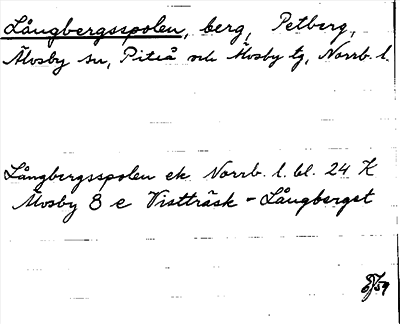 Långbergsspolen, berg, Petberg,
Älvsby sn, Piteå och Älvsby tg, Norrb. l.
Långbergsspolen ek. Norrb. l. bl. 24 K
Älvsby 8 e Vistträsk - Långberget